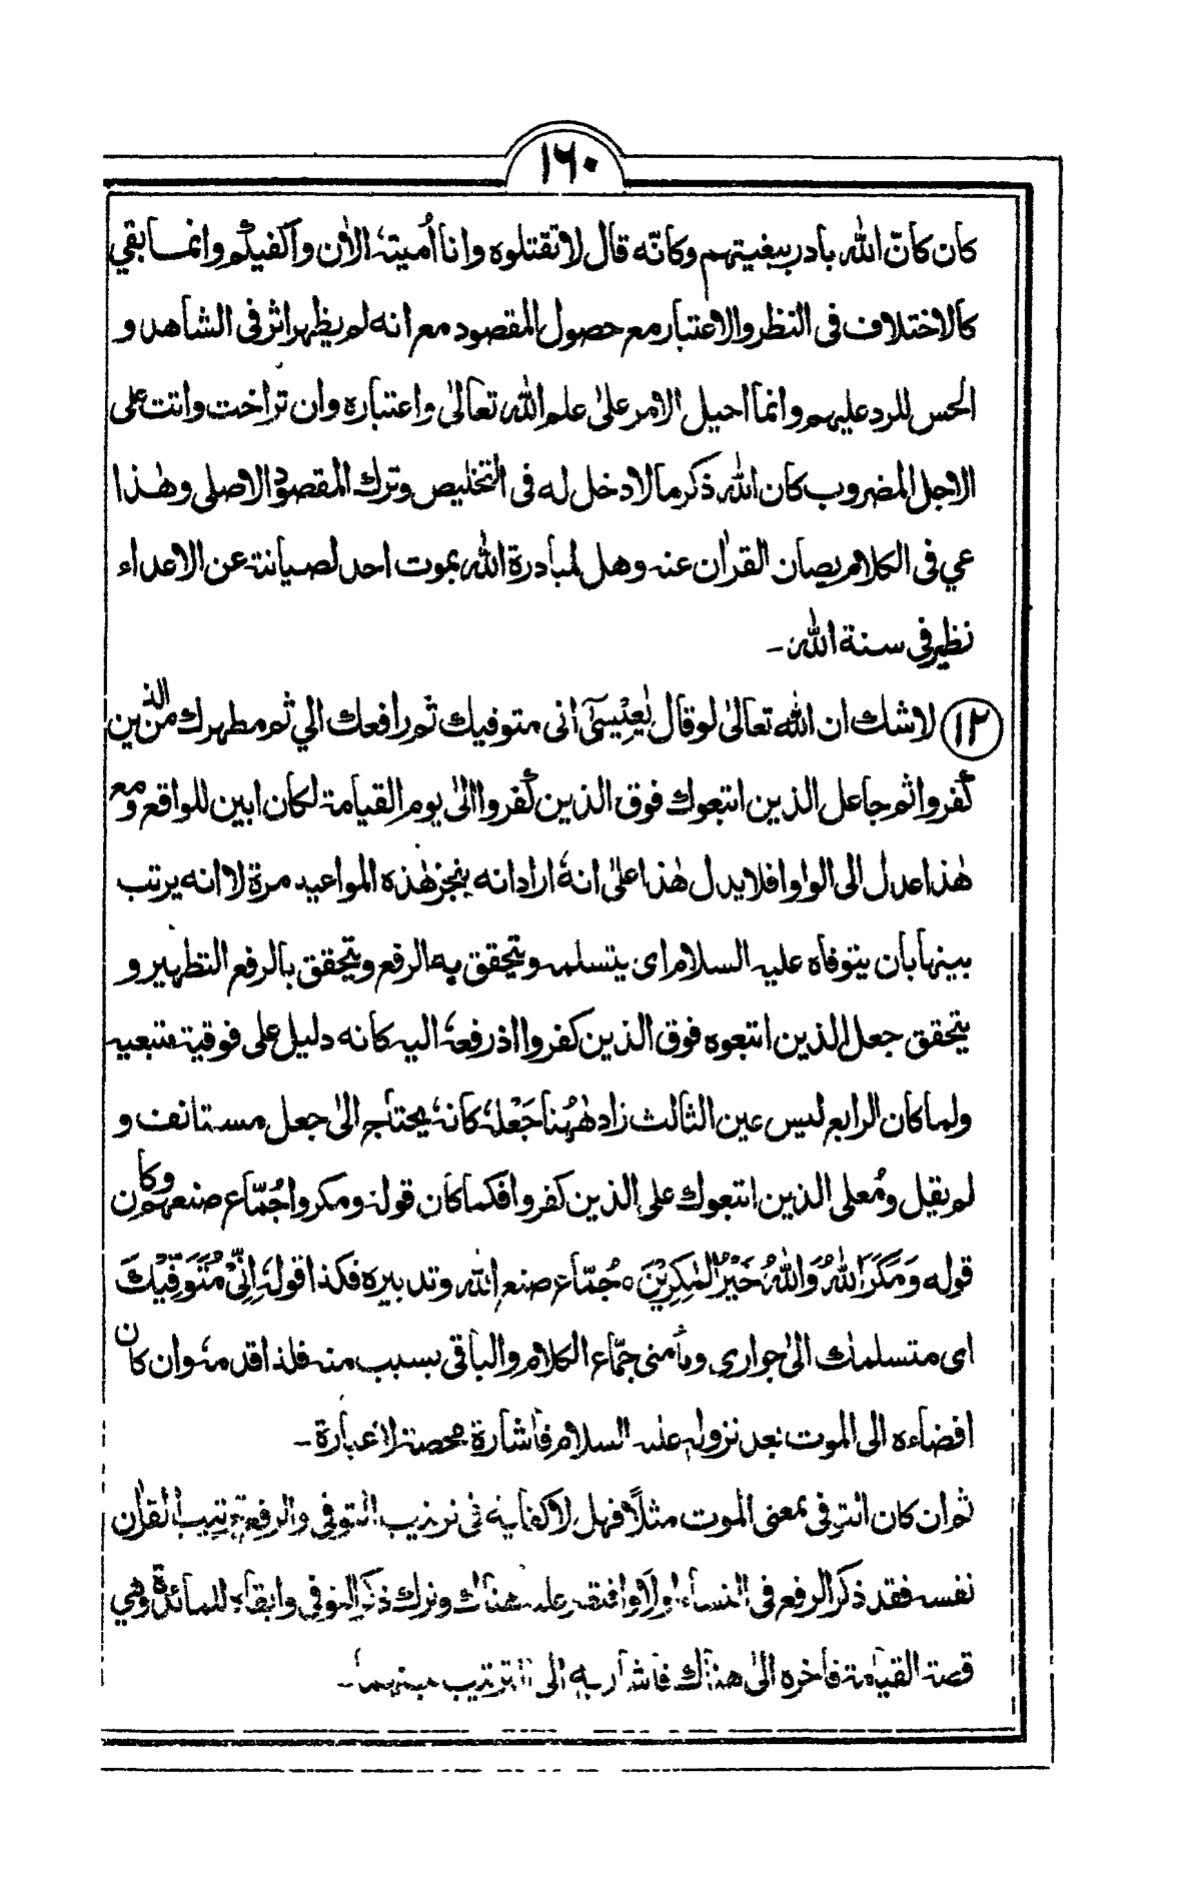 ١٦٠
كان كانّ الله بادر ببغيتهم وكانّه قال لا تقتلوه وانا اُميتهٗ الاٰن واكفيكم وانما بقي
كالاختلاف فى النظر والاعتبار مع حصول المقصود مع انه لم يظهر اثر فى الشاهد و
الحس للرد عليهم وانما احيل الامر علىٰ علم الله تعالىٰ واعتباره وان تراخت وانتت على
الاجل المضروب كان الله ذكر مالا دخل له فى التخليص وترك المقصود الاصلى وهٰذا
عي فى الكلام يصان القراٰن عنه وهل لمبادرة الله بموت احد لصيانته عن الاعداء
نظير فى سنة الله ـ
١٢ لاشك ان الله تعالىٰ لو قال يٰعِيْسىٰٓ انى متوفيك ثم رافعك الي ثم مطهرك من الذين
كفروا ثم جاعل الذين اتبعوك فوق الذين كفروا الىٰ يوم القيامة لكان ابين للواقع ومع
هٰذا عدل الى الواو افلا يدل هٰذا علىٰ انهٗ اراد انه ينجز هٰذه المواعيد مرة لا انه يرتب
بينها بان يتوفاه عليه السلام اى يتسلمه ويتحقق به الرفع ويتحقق بالرفع التطهير و
يتحقق جعل الذين اتبعوه فوق الذين كفروا اذ رفعهٗ اليه كانه دليل على فوقية متبعيه
ولما كان الرابع ليس عين الثالث زاد هٰهُنا جَعْلهٗ كانهٗ يحتاج الىٰ جعل مستانف و
لم يقل ومُعلى الذين اتبعوك على الذين كفروا فكما كان قولهٗ ومكروا جُمّاع صنعهم وكان
قوله وَمَكَرَ اللهُ وَاللهُ خَيْرُ الْمٰكِرِيْنَ ٥ جُمّاع صنع الله وتدبيره فكذا قولهٗ اِنِّيْ مُتَوَفِّيْكَ
اى متسلمك الىٰ جوارى ومأمنى جمّاع الكلام والباقى بسبب منه فلذا قدمهٗ وان كان
افضاءه الى الموت بعد نزوله عليه السلام فاشارة محصنة لا عبارة ـ
ثم ان كان التوفى بمعنى الموت مثلاً فهل لا كفاية فى ترتيب التوفى والرفع ترتيب القراٰن
نفسه فقد ذكر الرفع فى النساء اولا وافقه عليه هناك وترك ذكر التوفى وابقاه للمائدة وهي
قصة القيامة فاخره الىٰ هناك فاشار به الى الترتيب بينهما ـ